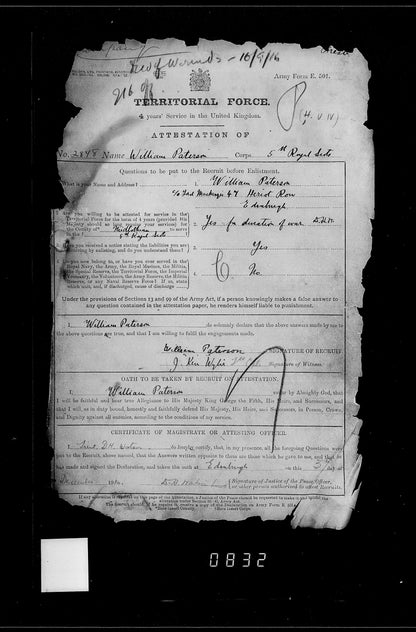 Died of Wounds - 16/9/16
Army Form E. 501.
TERRITORIAL FORCE.
4 years' Service in the United Kingdom.
ATTESTATION OF
No. 2848 Name William Paterson Corps 5th Royal Scots
Questions to be put to the Recruit before Enlistment.
What is your Name and Address?
1. William Paterson
47 Heriot Row
Edinburgh
Are you willing to be attested for service in the
Territorial Force for the term of 4 years (provided His
Majesty should so long require your services) for the
County of Midlothian to serve
in the 5th Royal Scots
2. Yes for duration of war
Have you received a notice stating the liabilities you are
incurring by enlisting, and do you understand them?
3. Yes
Do you belong to, or have you ever served in the
Royal Navy, the Army, the Royal Marines, the Militia,
the Special Reserve, the Territorial Force, the Imperial
Yeomanry, the Volunteers, the Army Reserve, the Militia
Reserve, or any Naval Reserve Force? If so, state
which unit, and, if discharged, cause of discharge
4. No.
Under the provisions of Sections 13 and 99 of the Army Act, if a person knowingly makes a false answer to
any question contained in the attestation paper, he renders himself liable to punishment.
I, William Paterson do solemnly declare that the above answers made by me to
the above questions are true, and that I am willing to fulfil the engagements made.
William Paterson SIGNATURE OF RECRUIT
Signature of Witness.
OATH TO BE TAKEN BY RECRUIT ON ATTESTATION.
I, William Paterson swear by Almighty God, that I
will be faithful and bear true Allegiance to His Majesty King George the Fifth, His Heirs, and Successors, and
that I will, as in duty bound, honestly and faithfully defend His Majesty, His Heirs, and Successors, in Person, Crown,
and Dignity against all enemies, according to the conditions of my service.
CERTIFICATE OF MAGISTRATE OR ATTESTING OFFICER.
I, Lieut. do hereby certify, that, in my presence, all the foregoing Questions were
put to the Recruit, above named, that the Answers written opposite to them are those which he gave to me, and that he
has made and signed the Declaration, and taken the oath at Edinburgh on this day of
December 191
Signature of Justice of the Peace, Officer,
or other person authorised to attest Recruits.
If any alteration is required on this page of the attestation, a Justice of the Peace should be requested to make it and
The Recruit should, if he require it, receive a copy of the Declaration on Army Form E. 501A.
0832